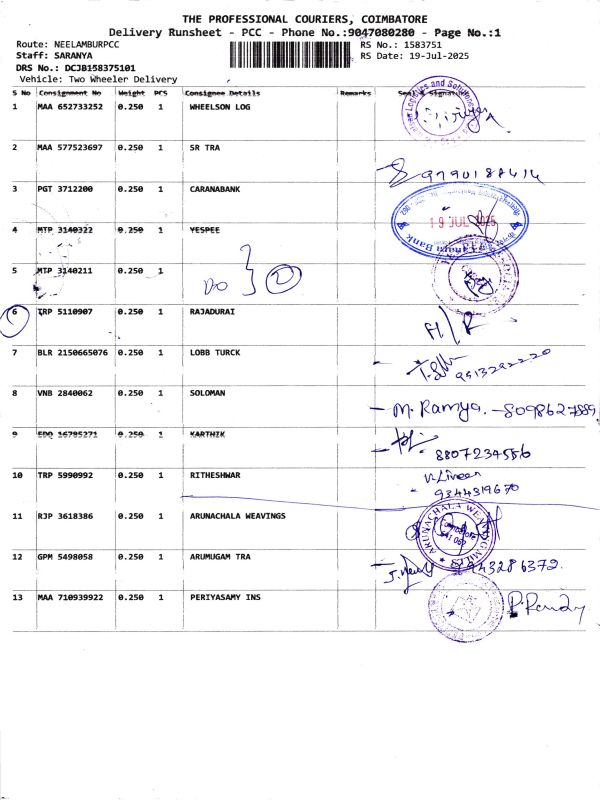 THE PROFESSIONAL COURIERS, COIMBATORE
Delivery Runsheet - PCC - Phone No.:9047080280 - Page No.:1
Route: NEELAMBURPCC
RS No.: 1583751
Staff: SARANYA
RS Date: 19-Jul-2025
DRS No.: DCJB158375101
Vehicle: Two Wheeler Delivery
S No Consignment No Weight PCS Consignee Details Remarks Seal & Signature
1 MAA 652733252 0.250 1 WHEELSON LOG
2 MAA 577523697 0.250 1 SR TRA
9790188414
3 PGT 3712200 0.250 1 CARANABANK
19 JUL 2025
4 MTP 3140322 0.250 1 YESPEE
5 MTP 3140211 0.250 1
DO } 2
6 TRP 5110907 0.250 1 RAJADURAI
H/R
7 BLR 2150665076 0.250 1 LOBB TURCK
9513292220
8 VNB 2840062 0.250 1 SOLOMAN
- M. Ramya. - 8098627889
9 EDQ 16795271 0.250 1 KARTHIK
8807234556
10 TRP 5990992 0.250 1 RITHESHWAR
9344319670
11 RJP 3618386 0.250 1 ARUNACHALA WEAVINGS
ARUNACHALA WEAVING MILL
12 GPM 5498058 0.250 1 ARUMUGAM TRA
9943286372.
13 MAA 710939922 0.250 1 PERIYASAMY INS
P. Pandy